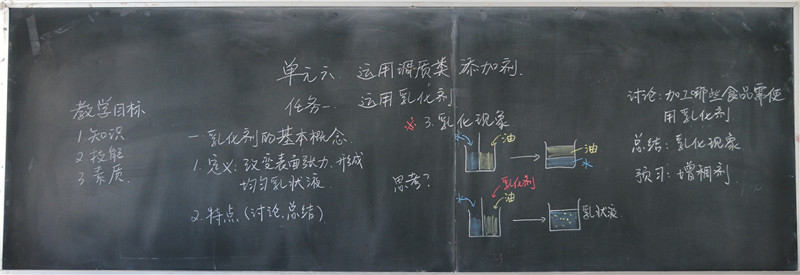 单元六 运用调质类添加剂.
任务一 运用乳化剂
教学目标
1.知识
2.技能
3.素质.
一.乳化剂的基本概念
1.定义:改变表面张力,形成
均匀乳状液.
2.特点(讨论、总结)
思考?
※ 3.乳化现象
水 油
油
水
乳化剂
水 油
乳状液
讨论:加工哪些食品需使
用乳化剂
总结:乳化现象
预习:增稠剂